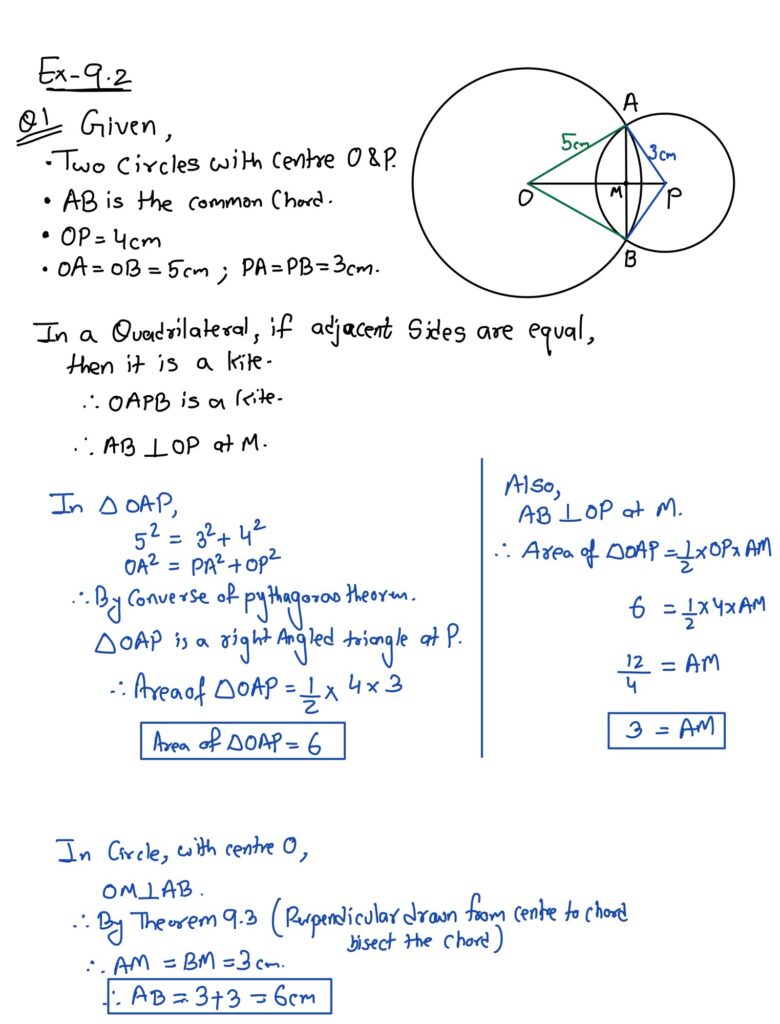 Ex-9.2
Q1 Given,
• Two Circles with Centre O & P.
• AB is the common Chord.
• OP = 4cm
• OA = OB = 5cm ; PA = PB = 3cm.
A
5cm
3cm
O
M
P
B
In a Quadrilateral, if adjacent Sides are equal,
then it is a kite.
∴ OAPB is a kite.
∴ AB ⊥ OP at M.
In △ OAP,
5² = 3² + 4²
OA² = PA² + OP²
∴ By Converse of pythagoras theorem.
△OAP is a right Angled triangle at P.
∴ Area of △OAP = 1/2 x 4 x 3
Area of △OAP = 6
Also,
AB ⊥ OP at M.
∴ Area of △OAP = 1/2 x OP x AM
6 = 1/2 x 4 x AM
12/4 = AM
3 = AM
In Circle, with centre O,
OM ⊥ AB.
∴ By Theorem 9.3 (Perpendicular drawn from centre to chord
bisect the chord)
∴ AM = BM = 3 cm.
∴ AB = 3+3 = 6cm